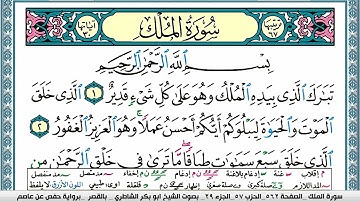 سُورَةُ الْمُلْكِ
بِسْمِ اللَّهِ الرَّحْمَٰنِ الرَّحِيمِ
تَبَارَكَ الَّذِي بِيَدِهِ الْمُلْكُ وَهُوَ عَلَىٰ كُلِّ شَيْءٍ قَدِيرٌ ١ الَّذِي خَلَقَ
الْمَوْتَ وَالْحَيَوٰةَ لِيَبْلُوَكُمْ أَيُّكُمْ أَحْسَنُ عَمَلًا وَهُوَ الْعَزِيزُ الْغَفُورُ ٢
الَّذِي خَلَقَ سَبْعَ سَمَٰوَٰتٍ طِبَاقًا مَّا تَرَىٰ فِي خَلْقِ الرَّحْمَٰنِ مِن
سورة الملك . الصفحة ٥٦٢ . الحزب ٥٧ . الجزء ٢٩ . بصوت الشيخ أبو بكر الشاطري . برواية حفص عن عاصم